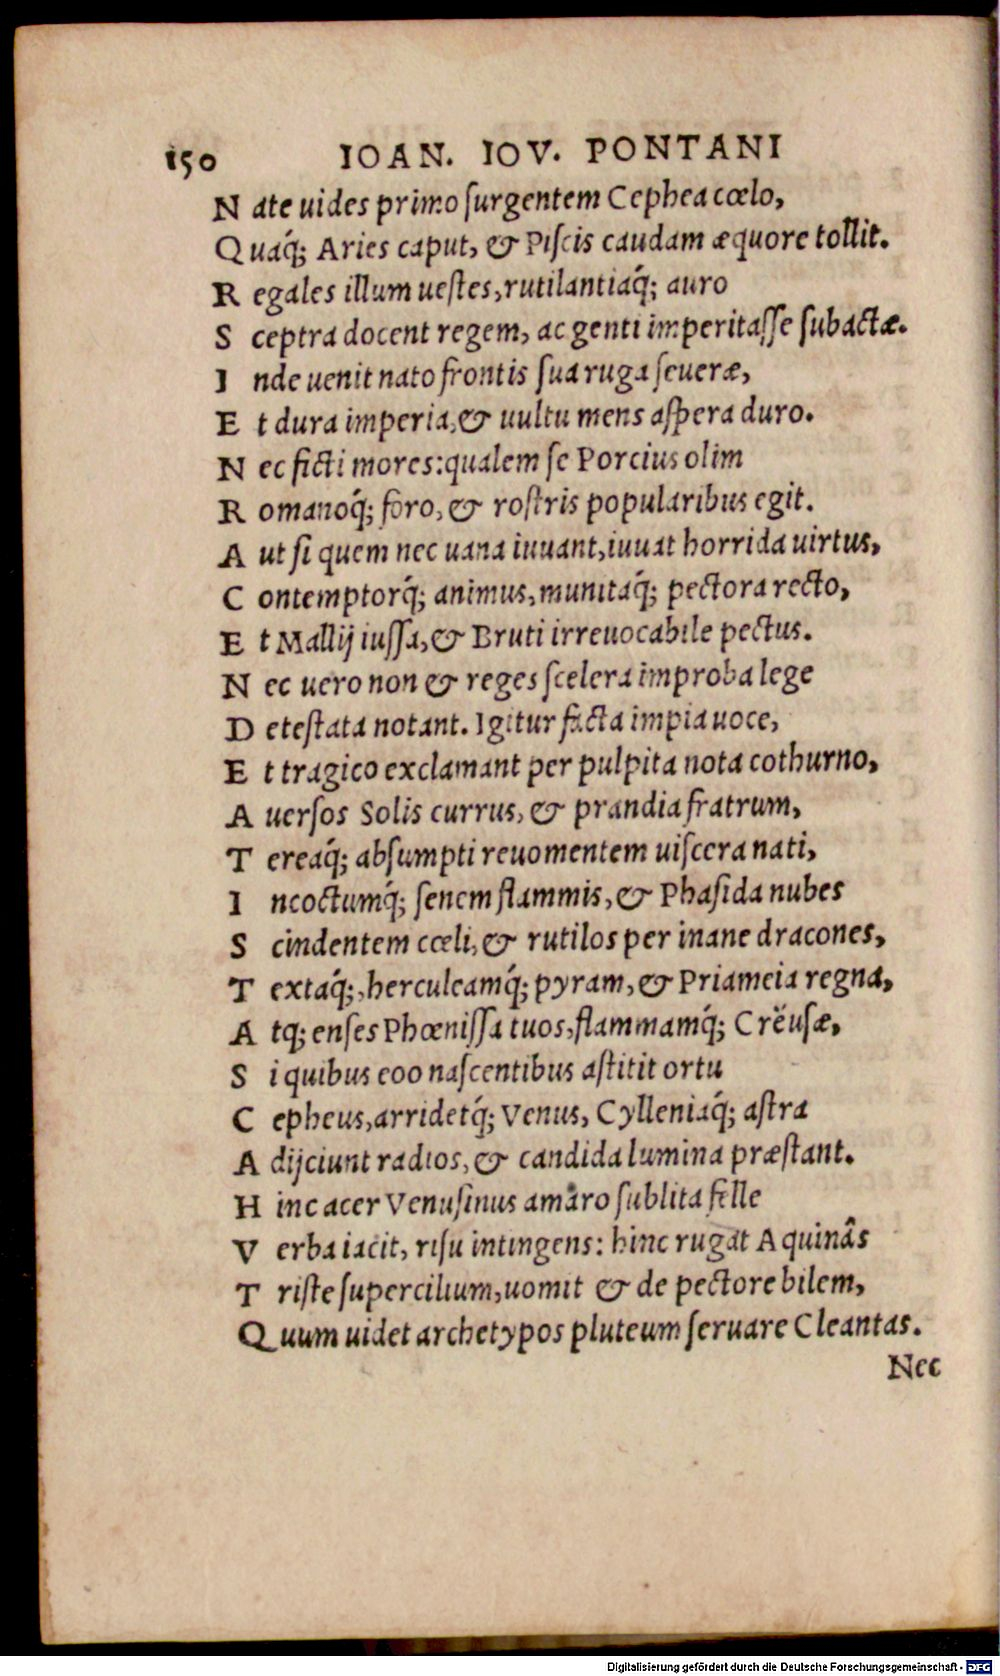 150 IOAN. IOV. PONTANI
Nate uides primo ſurgentem Cephea cœlo,
Quaq́; Aries caput, & Piſcis caudam æquore tollit.
Regales illum ueſtes, rutilantiaq́; auro
Sceptra docent regem, ac genti imperitaſſe ſubactæ.
Inde uenit nato frontis ſua ruga ſeueræ,
Et dura imperia, & uultu mens aſpera duro.
Nec ficti mores: qualem ſe Porcius olim
Romanoq́; foro, & roſtris popularibus egit.
Aut ſi quem nec uana iuuant, iuuat horrida uirtus,
Contemptorq́; animus, munitaq́; pectora recto,
Et Mallij iuſſa, & Bruti irreuocabile pectus.
Nec uero non & reges ſcelera improba lege
Deteſtata notant. Igitur facta impia uoce,
Et tragico exclamant per pulpita nota cothurno,
Auerſos Solis currus, & prandia fratrum,
Tereaq́; abſumpti reuomentem uiſcera nati,
Incoctumq́; ſenem flammis, & Phaſida nubes
Scindentem cœli, & rutilos per inane dracones,
Textaq́;, herculeamq́; pyram, & Priameia regna,
Atq; enſes Phœniſſa tuos, flammamq́; Crëuſæ,
Si quibus eoo naſcentibus aſtitit ortu
Cepheus, arridetq́; Venus, Cylleniaq́; aſtra
Adijciunt radios, & candida lumina præſtant.
Hinc acer Venuſinus amaro ſublita felle
Verba iacit, riſu intingens: hinc rugat Aquinâs
Triſte ſupercilium, uomit & de pectore bilem,
Quum uidet archetypos pluteum ſeruare Cleantas.
Nec
Digitalisierung gefördert durch die Deutsche Forschungsgemeinschaft - DFG